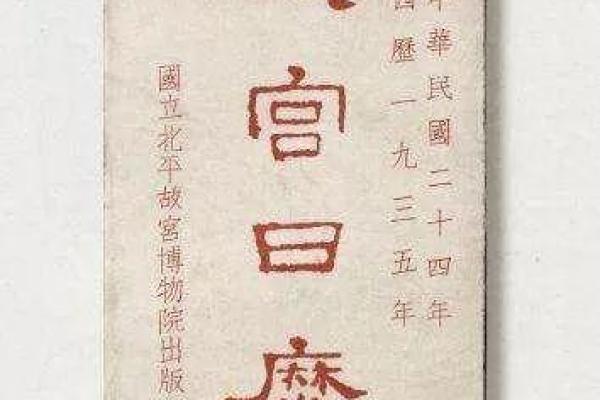 中華民國二十四年
西歷一九三五年
宮日
國立北平故宮博物院出版